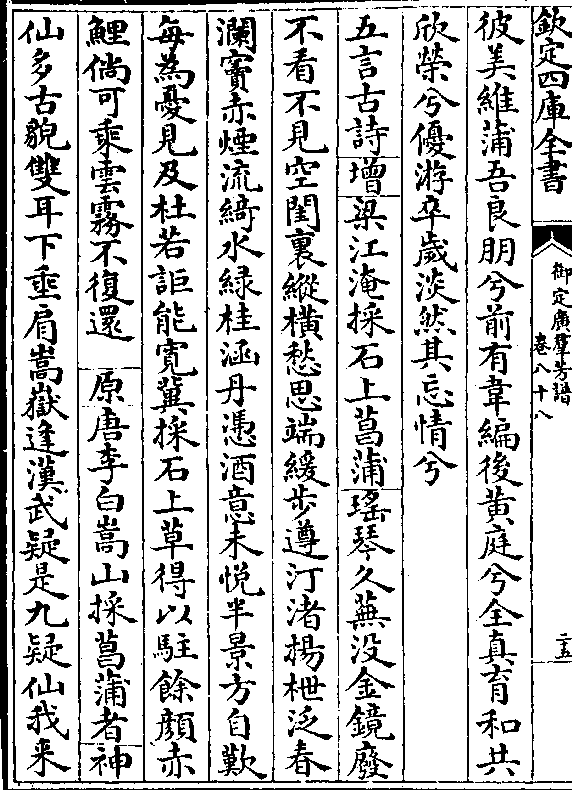 欽定四庫全書
御定廣羣芳譜
卷八十八
二五
彼美維蒲吾良朋兮前有韋編後黄庭兮全真育和共
欣榮兮優游卒歲淡然其忘情兮
五言古詩增梁江淹採石上菖蒲瑤琴久蕪没金鏡廢
不看不見空閨裏縱横愁思端緩步遵汀渚揚枻泛春
瀾竇赤煙流綺水緑桂涵丹憑酒意未悦半景方自歎
每為憂見及杜若詎能寬冀採石上草得以駐餘顔赤
鯉倘可乘雲霧不復還　原唐李白嵩山採菖蒲者神
仙多古貌雙耳下垂肩嵩嶽逢漢武疑是九疑仙我来